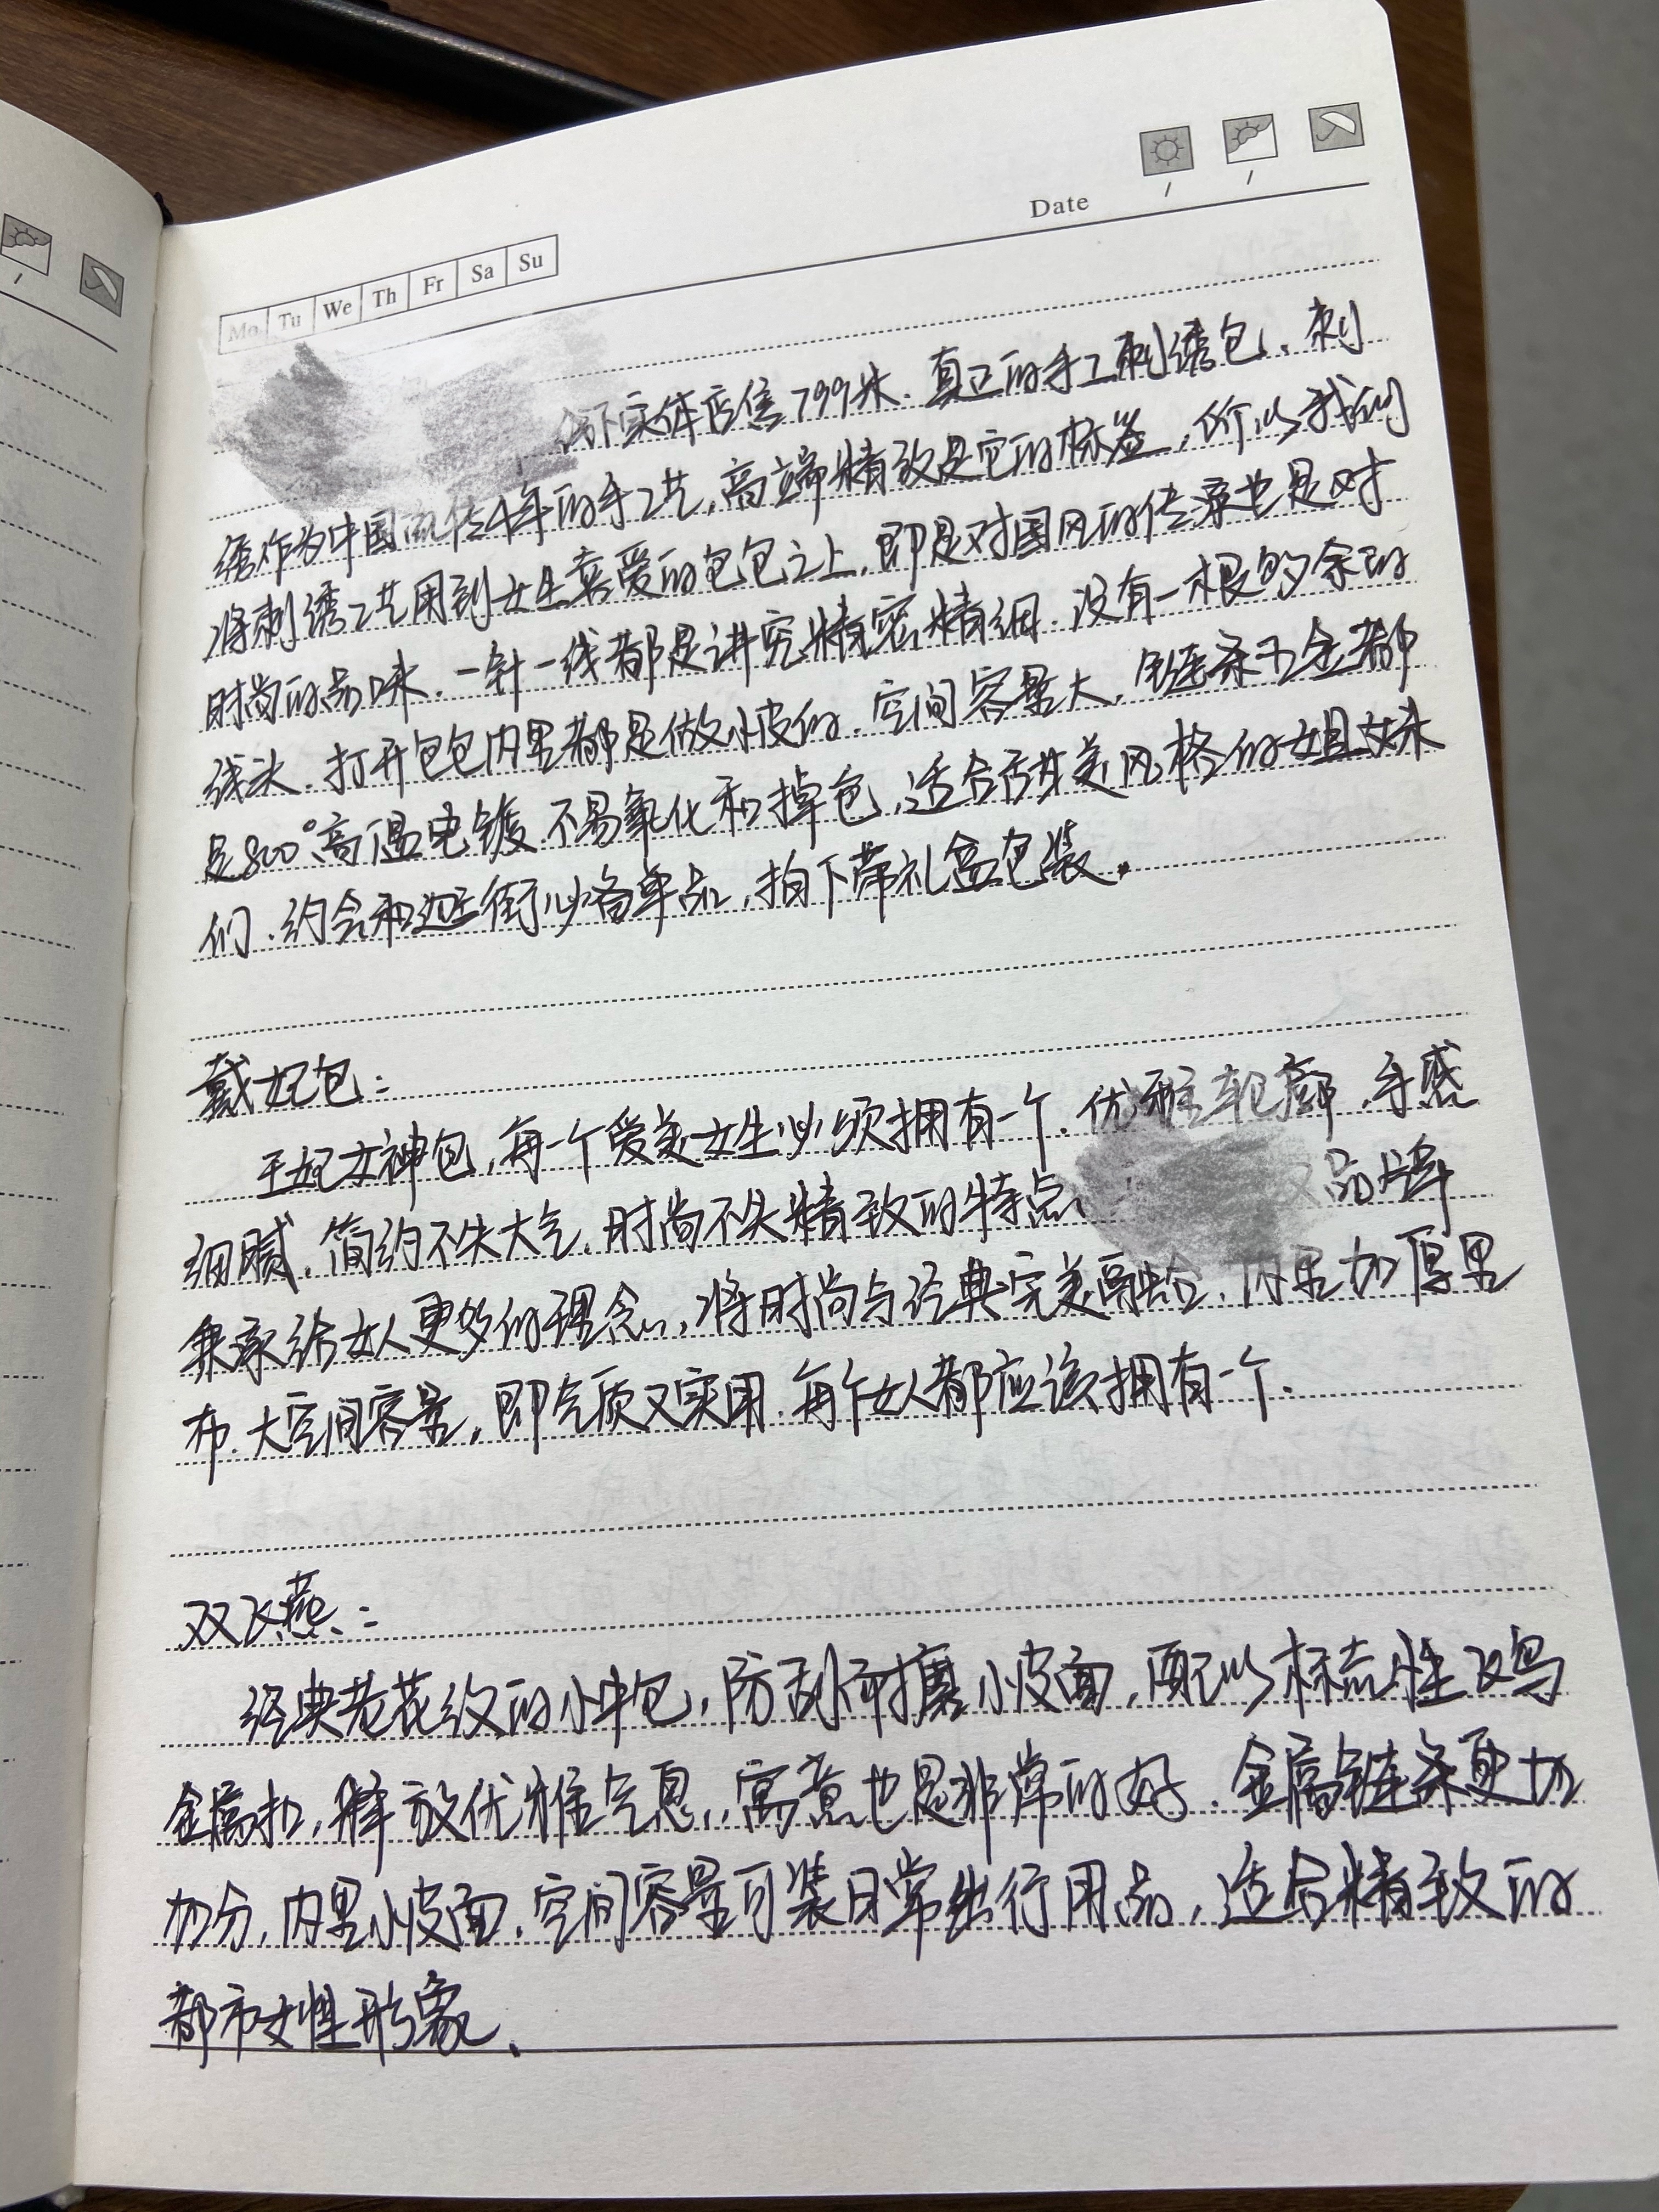 Date
Mo Tu We Th Fr Sa Su
线下实体店售799米.真正的手工刺绣包、刺
绣作为中国流传千年的手工艺,高端精致是它的标签,所以我们
将刺绣工艺用到女生喜爱的包包之上,即是对国风的传承也是对
时尚的品味.一针一线都是讲究精密精细.没有一根多余的
线头.打开包包内里都是做小皮的.空间容量大,链条五金都
是800°高温电镀.不易氧化和掉色,适合甜美风格的姐妹
们.约会和逛街必备单品,拍下带礼盒包装.
戴妃包:
王妃女神包,每一个爱美女生必须拥有一个.优雅轮廓,手感
细腻.简约不失大气.时尚不失精致的特点 品牌
秉承给女人更多的理念,将时尚与经典完美融合.内里加厚里
布.大空间容量,即气质又实用.每个女人都应该拥有一个.
双飞燕:
经典老花纹的小中包,防刮耐磨小皮面,配以标志性飞鸟
金属扣,释放优雅气息,寓意也是非常的好.金属链条更加
加分,内里小皮面.空间容量可装日常出行用品,适合精致的
都市女性形象、